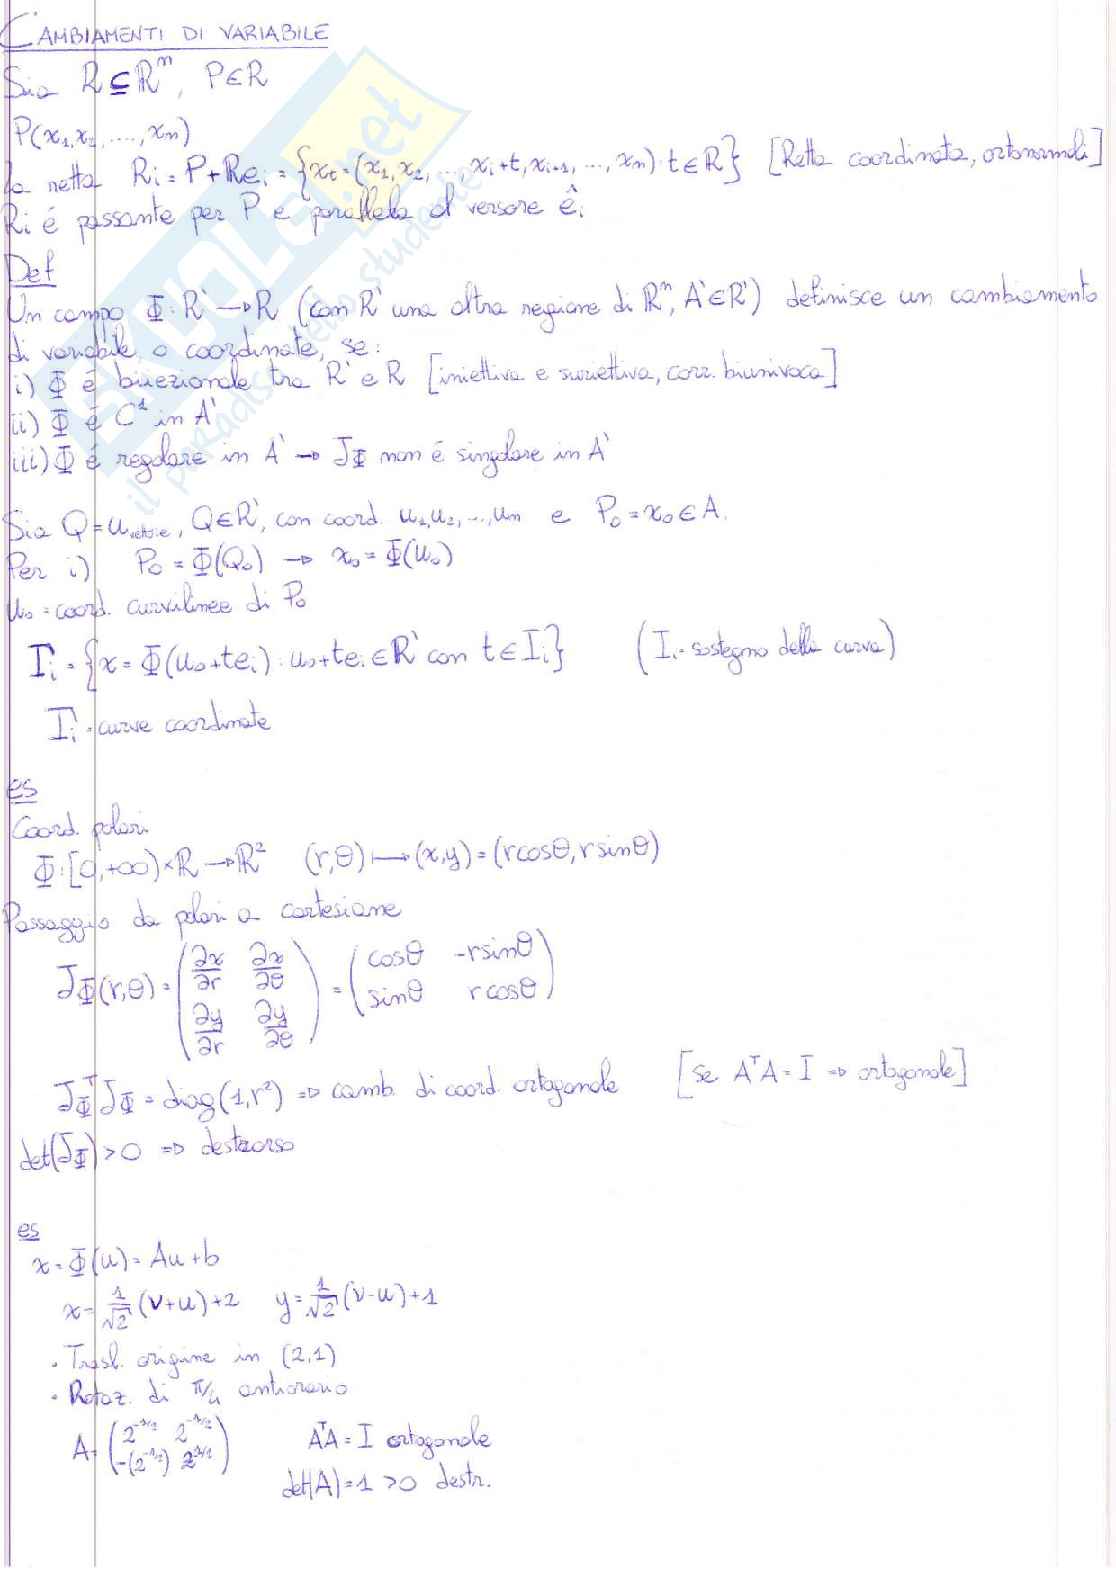 CAMBIAMENTI DI VARIABILE
Sia R ⊆ ℝⁿ, P∈R
P(x₁,x₂,....,xn)
la retta Ri = P+Rei = {xt=(x₁,x₂,...,xi+t,xi+1,...,xn): t∈R} [Retta coordinata, ortonormali]
Ri é passante per P e parallela al versore êi
Def
Un campo Φ: R' → R (con R' una altra regione di ℝⁿ, A'∈R') definisce un cambiamento
di variabile, o coordinate, se:
i) Φ é biiezionale tra R' e R [iniettiva e suriettiva, corr. biunivoca]
ii) Φ é C¹ in A'
iii) Φ é regolare in A' → JΦ non é singolare in A'
Sia Q=u vettore, Q∈R', con coord. u₁,u₂,...,un e P₀=x₀∈A.
Per i) P₀=Φ(Q₀) → x₀=Φ(u₀)
u₀=coord. curvilinee di P₀
Γi={x=Φ(u₀+tei): u₀+tei∈R' con t∈Ii} (Ii=sostegno della curva)
Γi=curve coordinate
es
Coord. polari
Φ:[0,+∞)×R→ℝ² (r,θ)⟼(x,y)=(rcosθ,rsinθ)
Passaggio da polari a cartesiane
JΦ(r,θ)= (∂x/∂r ∂x/∂θ ; ∂y/∂r ∂y/∂θ) = (cosθ -rsinθ ; sinθ rcosθ)
JΦᵀJΦ=diag(1,r²) ⇒ camb. di coord. ortogonale [se AᵀA=I ⇒ ortogonale]
det(JΦ)>0 ⇒ destrorso
es
x=Φ(u)=Au+b
x=1/√2(v+u)+2 y=1/√2(v-u)+1
• Trasl. origine in (2,1)
• Rotaz. di π/4 antiorario
A=(2^-1/2 2^-1/2 ; -(2^-1/2) 2^1/2) AᵀA=I ortogonale
det(A)=1>0 destr.
SKUOLA.net
il paradiso dello studente